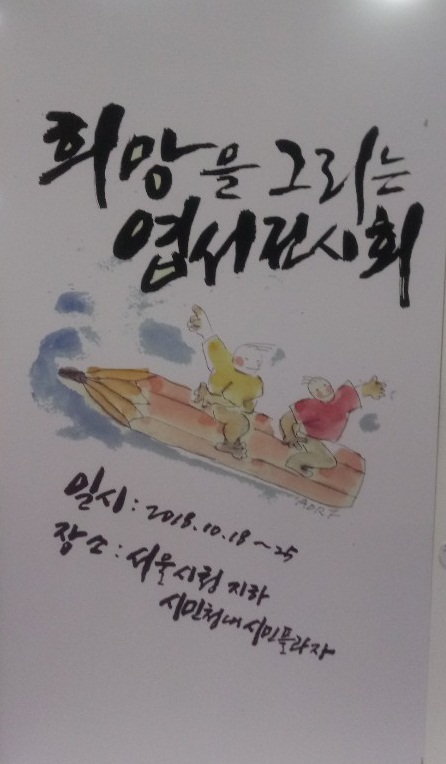 희망을 그리는
엽서전시회
일시 : 2018.10.18 ~ 25
장소 : 서울시청 지하
시민청내 시민플라자